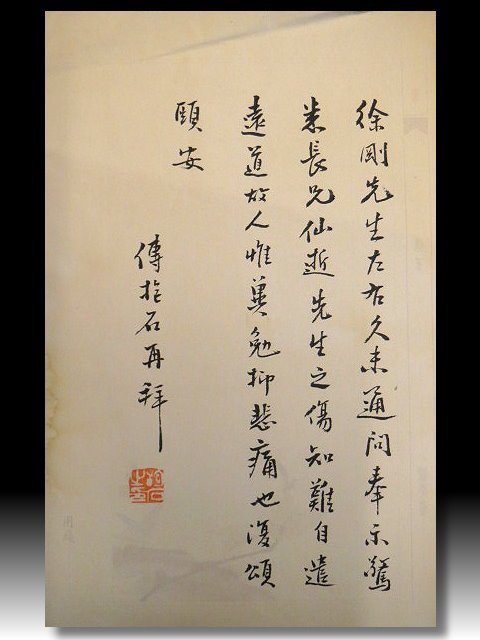 徐剛先生左右久未通问奉示驚
悉長兄仙逝先生之傷知難自遣
遠道故人惟冀勉抑悲痛也復頌
頤安
傅抱石再拜